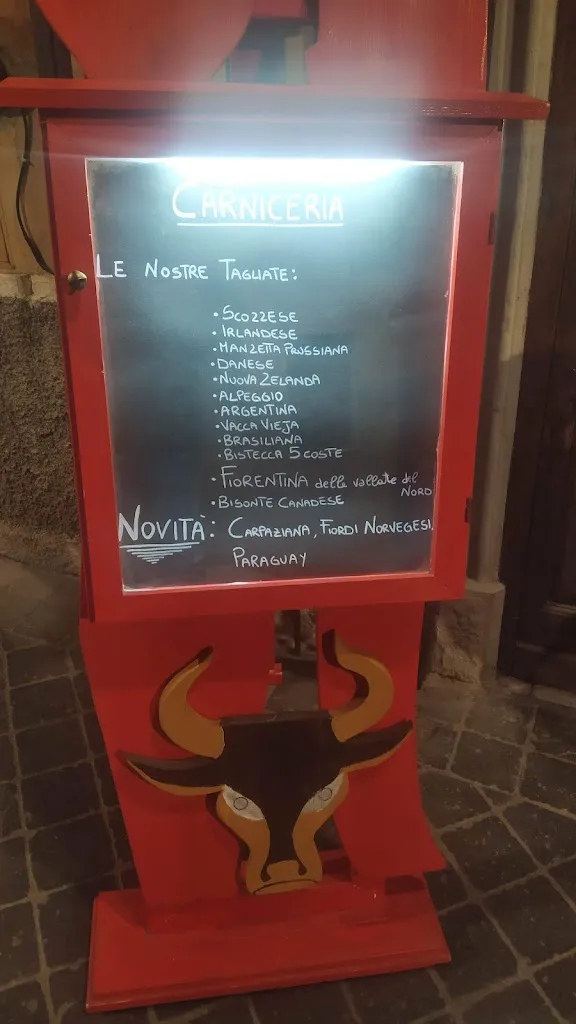 CARNICERIA
LE NOSTRE TAGLIATE:
• SCOZZESE
• IRLANDESE
• MANZETTA PRUSSIANA
• DANESE
• NUOVA ZELANDA
• ALPEGGIO
• ARGENTINA
• VACCA VIEJA
• BRASILIANA
• BISTECCA 5 COSTE
• FIORENTINA delle vallate del
NORD
• BISONTE CANADESE
NOVITÀ: CARPAZIANA, FIORDI NORVEGESI,
PARAGUAY